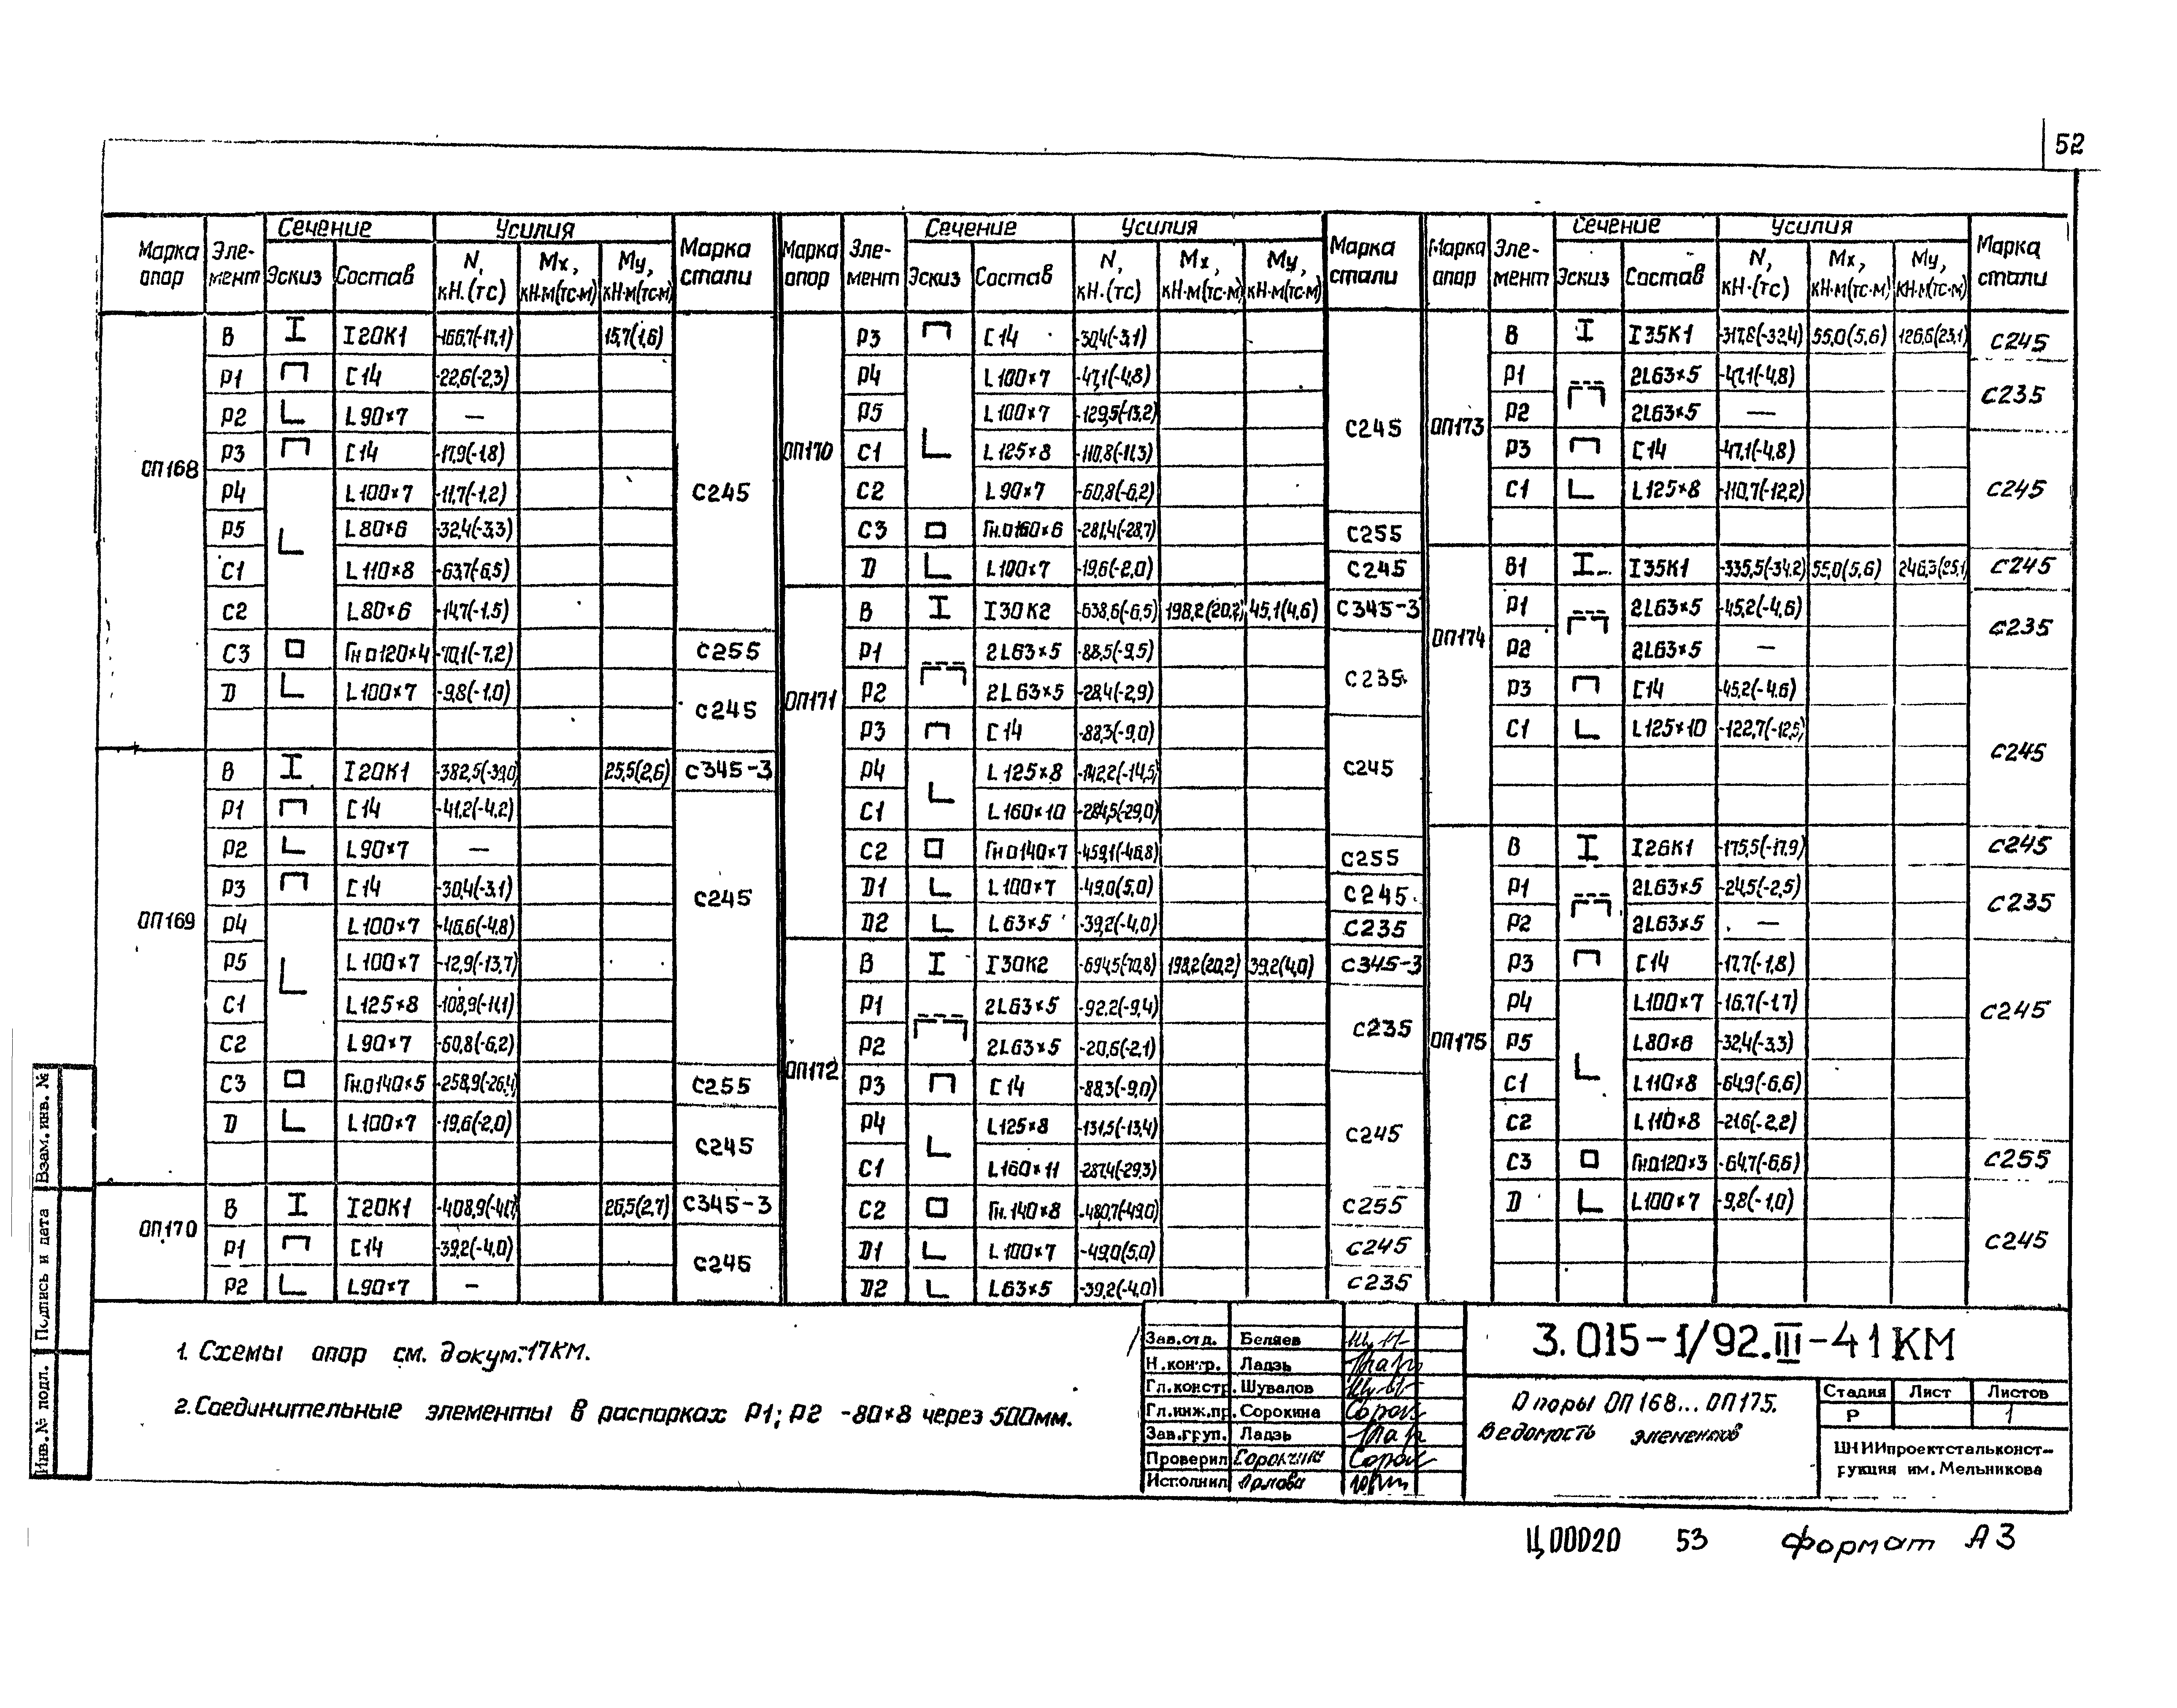 52
Марка опор | Эле-мент | Сечение | Усилия | Марка стали
Эскиз | Состав | N, кН.(тс) | Mx, кН·м(тс·м) | My, кН·м(тс·м)
ОП168
В I20К1 -166,7(-17,1) 15,7(1,6) С245
Р1 [14 -22,6(-2,3)
Р2 L90×7 —
Р3 [14 -17,9(-1,8)
Р4 L100×7 -11,7(-1,2)
Р5 L80×6 -32,4(-3,3)
С1 L110×8 -63,7(-6,5)
С2 L80×6 -14,7(-1,5)
С3 Гн□120×4 -70,1(-7,2) С255
D L100×7 -9,8(-1,0) С245
ОП169
В I20К1 -382,5(-39,0) 25,5(2,6) С345-3
Р1 [14 -41,2(-4,2) С245
Р2 L90×7 —
Р3 [14 -30,4(-3,1)
Р4 L100×7 -46,6(-4,8)
Р5 L100×7 -12,9(-13,7)
С1 L125×8 -108,9(-11,1)
С2 L90×7 -60,8(-6,2)
С3 Гн.□140×5 -258,9(-26,4) С255
D L100×7 -19,6(-2,0) С245
ОП170
В I20К1 -408,9(-41,7) 26,5(2,7) С345-3
Р1 [14 -39,2(-4,0) С245
Р2 L90×7 —
Марка опор | Эле-мент | Сечение | Усилия | Марка стали
Эскиз | Состав | N, кН.(тс) | Mx, кН·м(тс·м) | My, кН·м(тс·м)
ОП170
Р3 [14 -30,4(-3,1) С245
Р4 L100×7 -47,1(-4,8)
Р5 L100×7 -129,5(-13,2)
С1 L125×8 -110,8(-11,3)
С2 L90×7 -60,8(-6,2)
С3 Гн.□160×6 -281,4(-28,7) С255
D L100×7 -19,6(-2,0) С245
ОП171
В I30К2 -638,6(-6,5) 198,2(20,2) 45,1(4,6) С345-3
Р1 2L63×5 -88,5(-9,5) С235
Р2 2L63×5 -28,4(-2,9)
Р3 [14 -88,3(-9,0) С245
Р4 L125×8 -142,2(-14,5)
С1 L160×10 -284,5(-29,0)
С2 Гн□140×7 -459,1(-46,8) С255
D1 L100×7 -49,0(5,0) С245
D2 L63×5 -39,2(-4,0) С235
ОП172
В I30К2 -694,5(-70,8) 198,2(20,2) 39,2(4,0) С345-3
Р1 2L63×5 -92,2(-9,4) С235
Р2 2L63×5 -20,6(-2,1)
Р3 [14 -88,3(-9,0) С245
Р4 L125×8 -131,5(-13,4)
С1 L160×11 -287,4(-29,3)
С2 Гн.140×8 -480,7(-49,0) С255
D1 L100×7 -49,0(5,0) С245
D2 L63×5 -39,2(-4,0) С235
Марка опор | Эле-мент | Сечение | Усилия | Марка стали
Эскиз | Состав | N, кН·(тс) | Mx, кН·м(тс·м) | My, кН·м(тс·м)
ОП173
В I35К1 -317,6(-32,4) 55,0(5,6) 126,6(23,1) С245
Р1 2L63×5 -47,1(-4,8) С235
Р2 2L63×5 —
Р3 [14 -47,1(-4,8) С245
С1 L125×8 -110,7(-12,2)
ОП174
В1 I35К1 -335,5(-34,2) 55,0(5,6) 246,3(25,1) С245
Р1 2L63×5 -45,2(-4,6) С235
Р2 2L63×5 —
Р3 [14 -45,2(-4,6) С245
С1 L125×10 -122,7(-12,5)
ОП175
В I26К1 -175,5(-17,9) С245
Р1 2L63×5 -24,5(-2,5) С235
Р2 2L63×5 —
Р3 [14 -17,7(-1,8) С245
Р4 L100×7 -16,7(-1,7)
Р5 L80×6 -32,4(-3,3)
С1 L110×8 -64,9(-6,6)
С2 L110×8 -21,6(-2,2)
С3 Гн□120×3 -64,7(-6,6) С255
D L100×7 -9,8(-1,0) С245
1. Схемы опор см. докум.-17КМ.
2. Соединительные элементы в распорках Р1; Р2 -80×8 через 500мм.
Зав.отд. Беляев
Н.контр. Ладзь
Гл.констр. Шувалов
Гл.инж.пр. Сорокина
Зав.груп. Ладзь
Проверил Сорокина
Исполнил Орлова
3.015-1/92.III-41КМ
Опоры ОП168...ОП175.
Ведомость элементов
Стадия Лист Листов
Р 1
ЦНИИпроектстальконст-
рукция им. Мельникова
Инв.№ подл. Подпись и дата Взам.инв.№
Ц00020 53 Формат А3